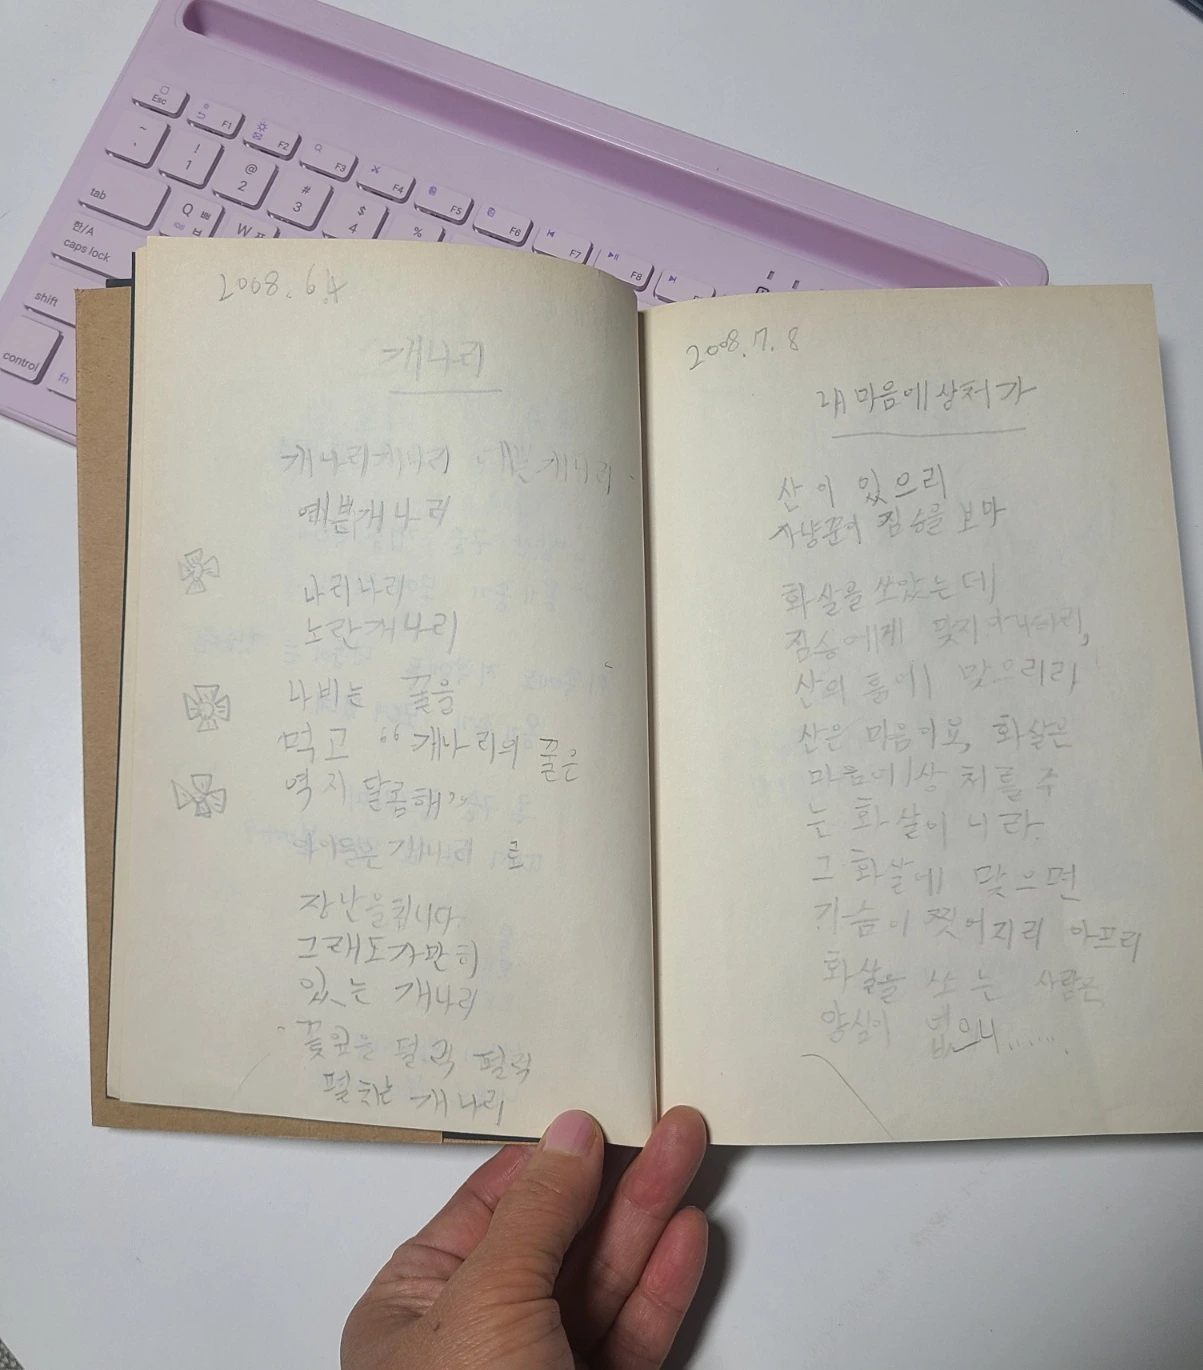 Esc
F1
F2
F3
F4
F5
F6
F7
F8
~
! 1
@ 2
# 3
$ 4
%
tab
Q ㅃ ㅂ
W
한/A
caps lock
shift
control
fn
2008.
개나리
개나리개나리 예쁜개나리
예쁜개나리
나리나리
노란개나리
나비는 꿀을
먹고 “개나리의 꿀은
역지 달콤해”
아이들은 개나리 로
장난을칩니다
그래도가만히
있는 개나리
꽃잎을 펄럭 펄럭
펼치는 개나리
2008.7.8
내 마음에상처가
산이 있으리
사냥꾼이 짐승을 보아
화살을 쏘았는데
짐승에게 맞지
산의 틈에 맞으리라
산은 마음이요, 화살은
마음에상처를 주
는 화살이 니라.
그 화살에 맞으면
가슴이 찢어지리 아프리
화살을 쏘는 사람은
양심이 없으니......